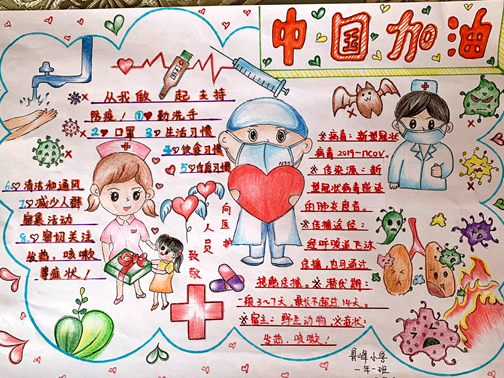 中国加油
从我做起支持
防疫！①勤洗手
2 口罩 3 生活习惯
4 饮食习惯
5 作息习惯
6 清洁和通风
7 减少人群
聚集活动
8 密切关注
发热、咳嗽
等症状！
向医护
人员
致敬
※病毒：新型冠状
病毒2019-nCoV.
※传染源：新
型冠状病毒感染
的肺炎患者。
※传播途径：
经呼吸道飞沫
传播，也可通过
接触传播。※潜伏期：
一般3~7天，最长不超过14天。
※宿主：野生动物，※症状：
发热，咳嗽！
小学
一年一班